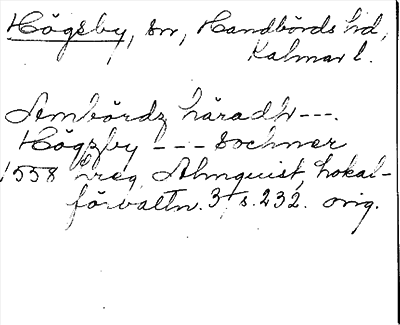 Högsby, sn, Handbörds hd,
Kalmar l.
Aembördz häradh ---.
Högzby --- Sochner
1558 Dreg, Almquist, Lokal-
förvaltn. 3, s. 232. orig.